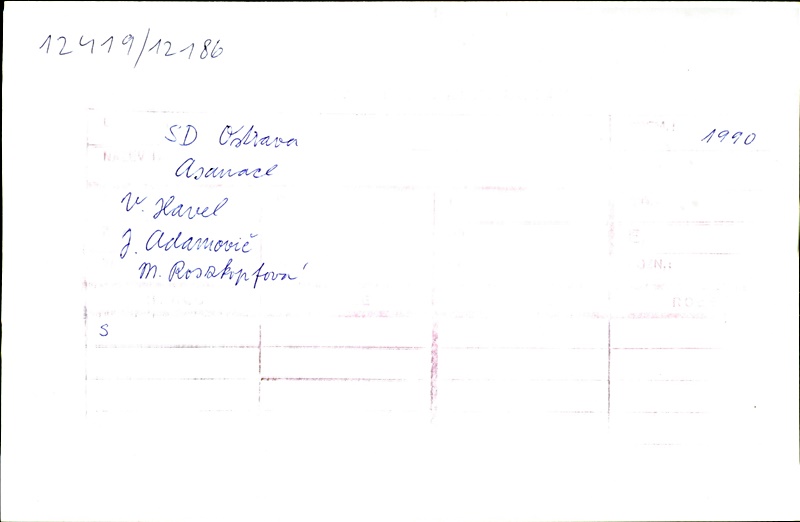 12419/12186
SD Ostrava
1990
Asanace
V. Havel
J. Adamovič
M. Roszkopfová
S